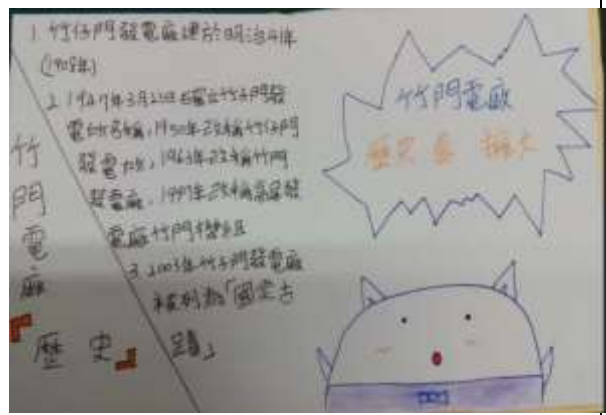 1. 竹仔門發電廠建於明治41年
(1908年)
2. 1947年3月 竹子門發
電所名稱,1950年改稱竹仔門
發電所,1963年改稱竹門
發電廠,1997年改稱高屏發
電廠竹門機組
3. 2003年竹子門發電廠
被列為「國定古
蹟」
竹門電廠
『歷史』
竹門電廠
歷史 大